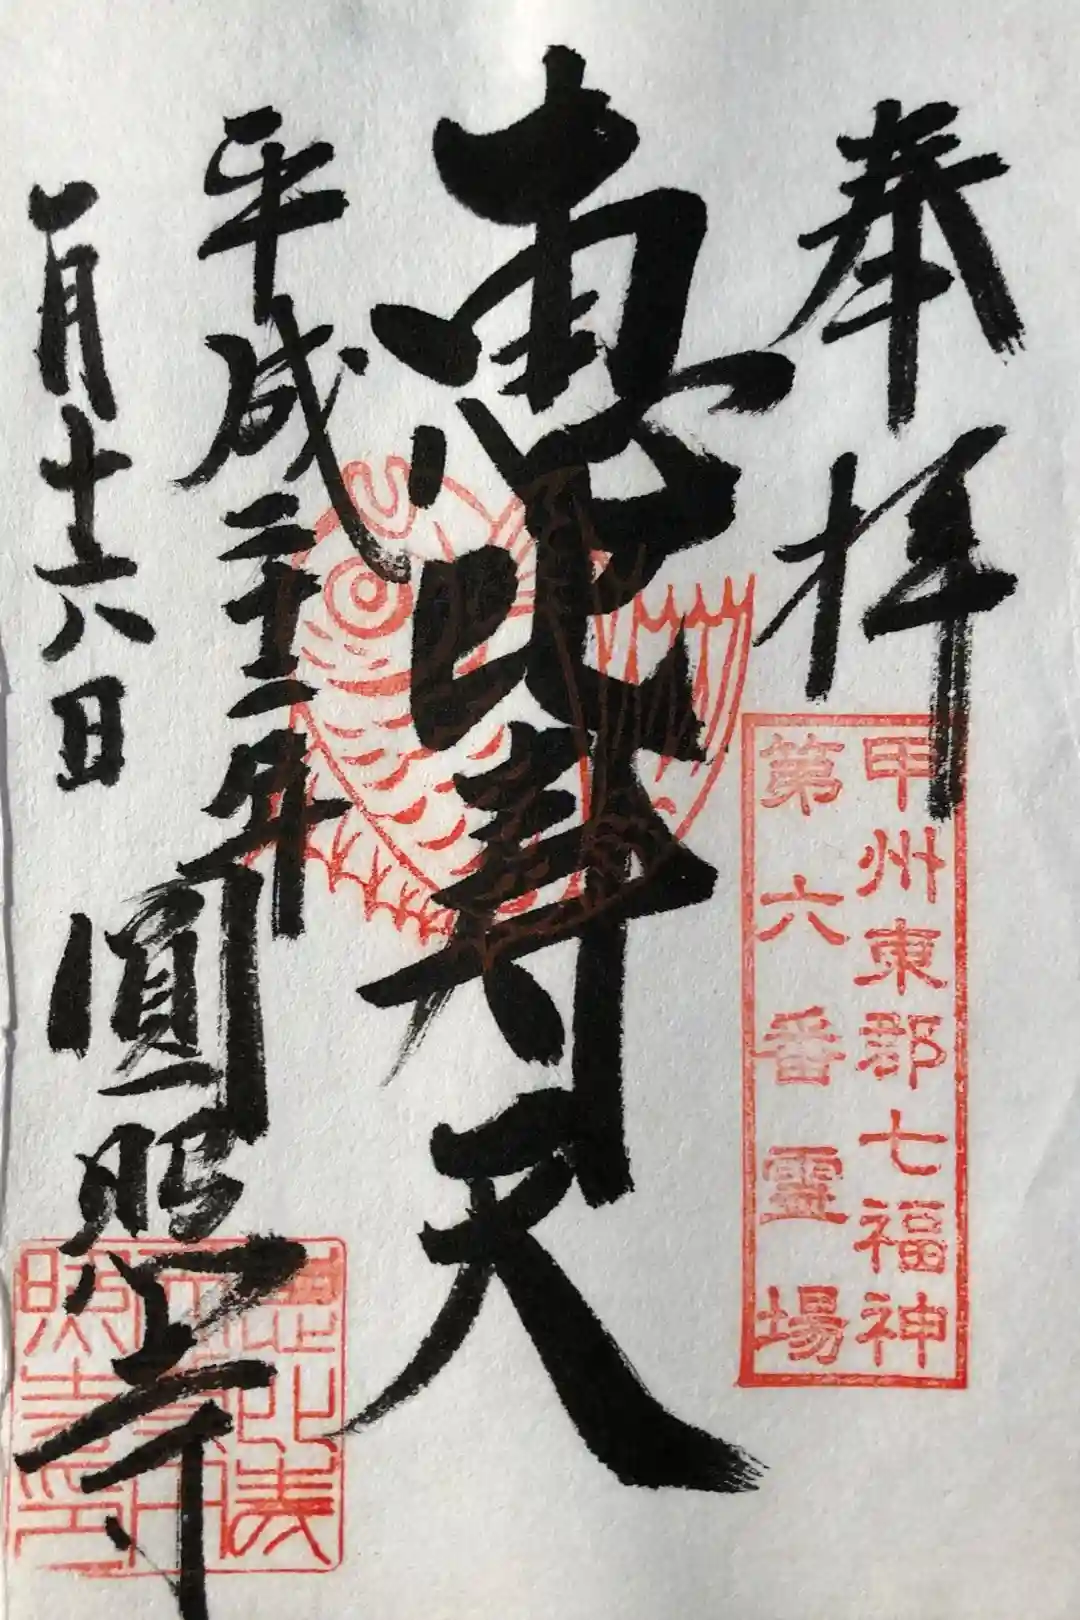 奉拝
甲州東郡七福神
第六番霊場
恵比寿天
平成三十一年
一月十六日
圓照寺